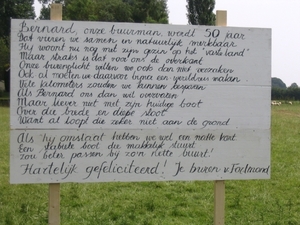 Bernard, onze buurman, wordt 50 jaar
Dat vieren we samen en natuurlijk merkbaar
Hij woont nu nog met zijn gezin op het "vasteland"
Maar straks is dat voor ons de overkant
Onze buurenplicht willen we ook dan niet verzaken
Ook al moeten we daarvoor bijna een wereldreis maken
Vele kilometers zouden we kunnen besparen
Als Bernard ons dan wil overvaren
Maar liever niet met zijn huidige boot
Over die brede en diepe sloot
Want al loopt die zeker niet aan de grond
Als hij omslaat hebben we wel een natte kont
Een stabiele boot die makkelijk stuurt
zou beter passen bij zo'n nette buurt!
Hartelijk gefeliciteerd! Je buren v.